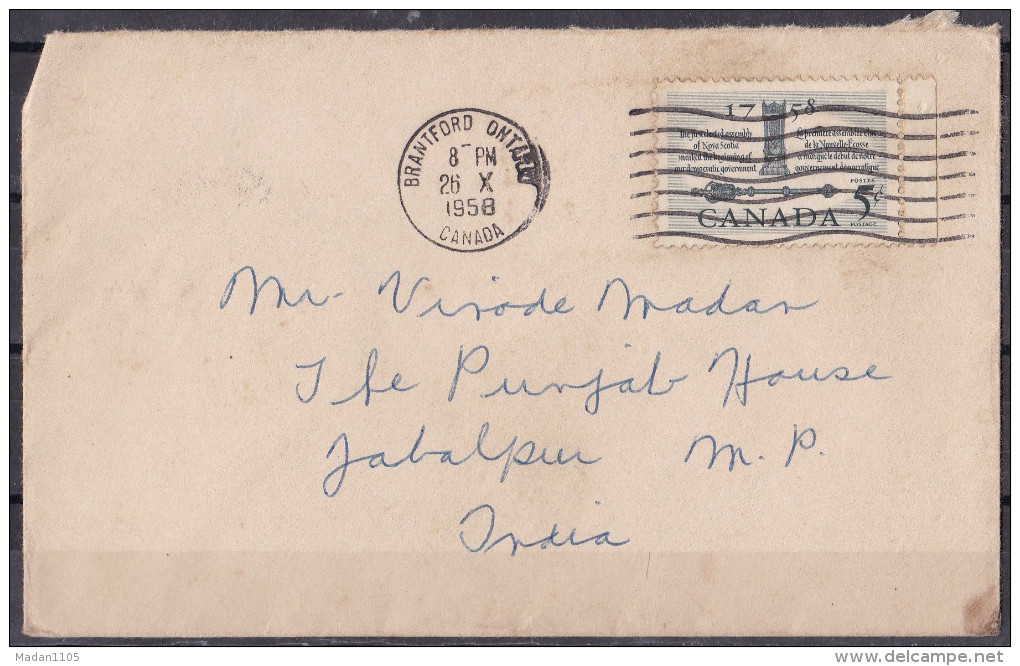 BRANTFORD ONTARIO
8 PM
26 X
1958
CANADA
1758
The first elected assembly
of Nova Scotia
marked the beginning of
our democratic government
La première assemblée élue
de la Nouvelle-Écosse
a marqué le début de notre
gouvernement démocratique
POSTES
5¢
POSTAGE
CANADA
Mr. Virode Madan
The Punjab House
Jabalpur M. P.
India
Madan1105
delcampe.net